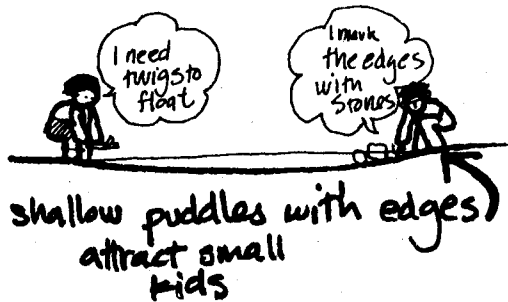 I need
twigs to
float
I mark
the edges
with
stones
shallow puddles with edges
attract small
kids